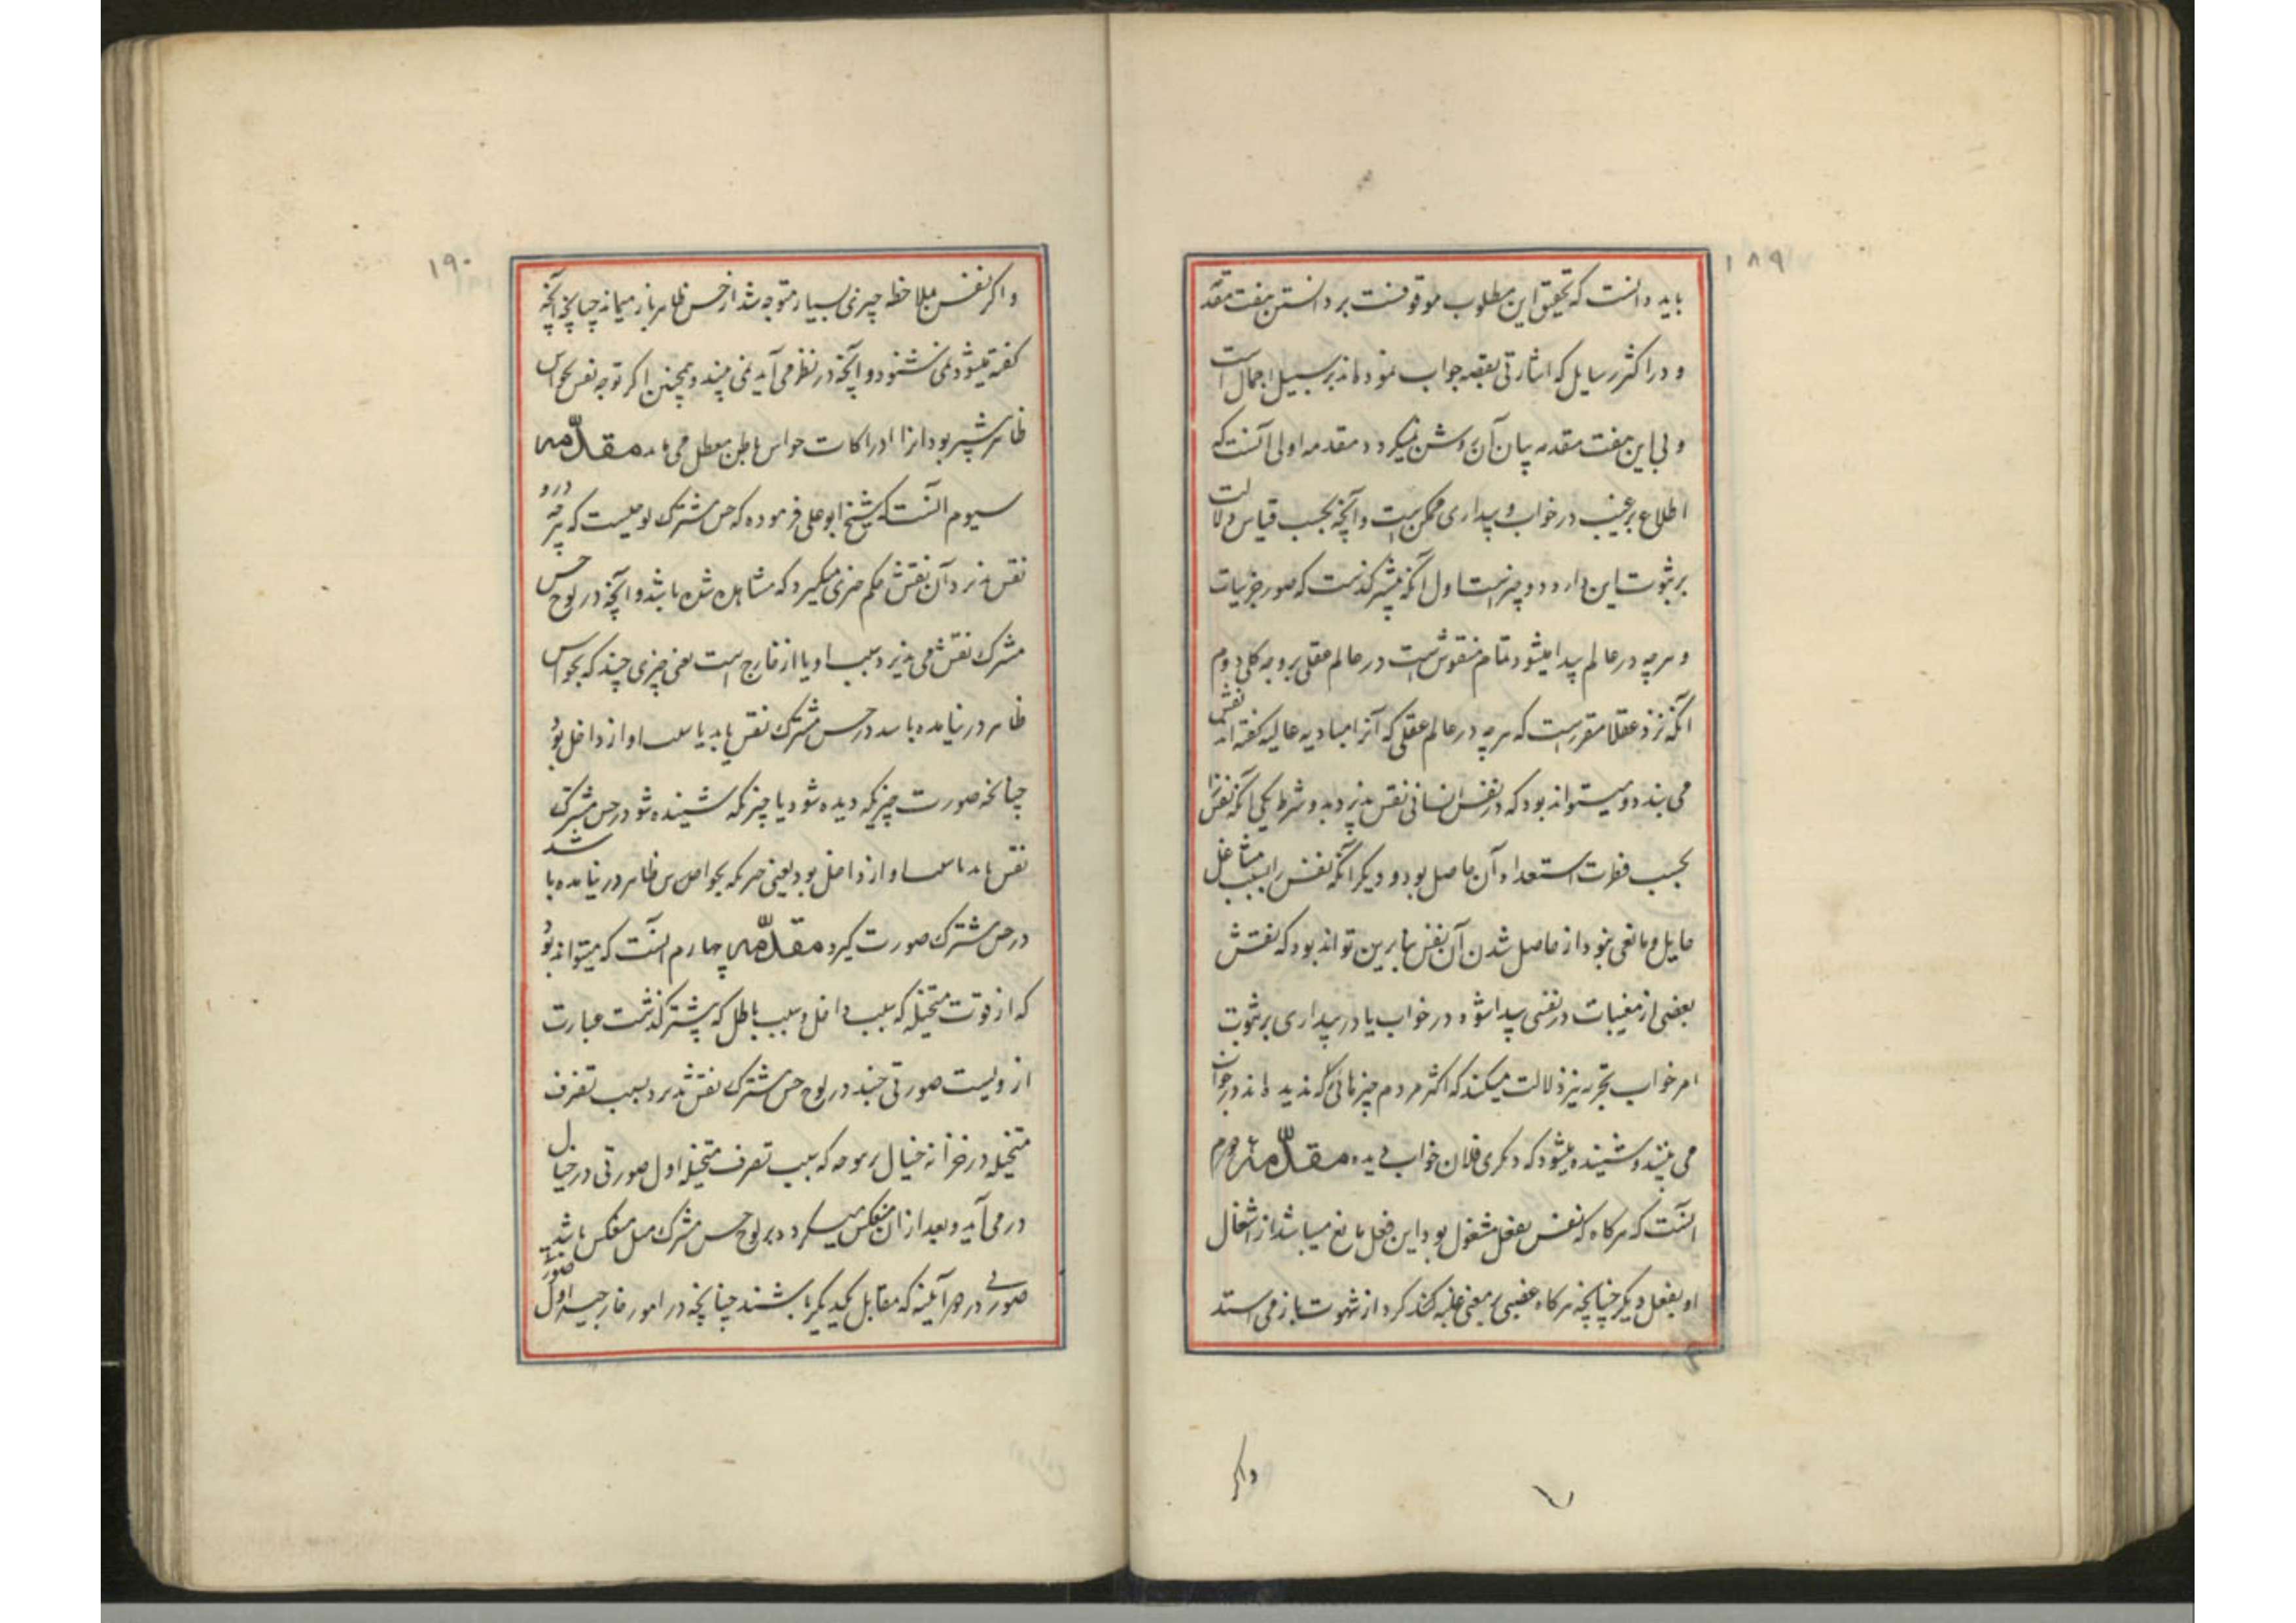 ۱۸۹
باید دانست که تحقیق این مطلوب موقوفست بر دانستن هفت مقد
و در اکثر رسایل که اشارتی بقصه جواب نموده اند بر سبیل اجمال است
و بی این هفت مقدمه بیان آن روشن نمیکردد مقدمه اولی آنست که
اطلاع بر غیب در خواب و بیداری ممکن است و آنچه بحسب قیاس دلالت
بر ثبوت این دارد دو چیز است اول آنکه پیشتر کذشت که صور جزییات
و هر چه در عالم پیدا میشود تمام منقوش است در عالم عقلی بر وجه کلی دوم
آنکه نزد عقلا مقرر است که هر چه در عالم عقلی که آنرا مبادیه عالیه کفته اند نقش
می بندد میتواند بود که در نفس انسانی نقش پذیرد بدو شرط یکی آنکه نفس را
بحسب فطرت استعداد آن حاصل بود و دیکر آنکه نفس را بسبب مشاغل
حایل و مانعی نبود از حاصل شدن آن نقش بنابرین تواند بود که نقش
بعضی از مغیبات در نفسی پیدا شود در خواب یا در بیداری بر ثبوت
امر خواب تجربه نیز دلالت میکند که اکثر مردم چیزهائی که ندیده اند در خواب
می بینند و شنیده میشود که دیکری فلان خواب دیده مقدّمهٔ دوم
آنست که هرکاه که نفس بفعلی مشغول بود این فعل مانع میباشد از اشغال
او بفعل دیکر چنانچه هرکاه غضبی بر معنی غلبه کند کرد از شهوت باز می استد
واکر
۱۹۰
و اکر نفس بملاحظه چیزی بسیار متوجه شد از حس ظاهر باز میماند چنانچه آنچه
کفته میشود نمی شنود و آنچه در نظر می آید نمی بیند و همچنین اکر توجه نفس بحواس
ظاهر بیشتر بود از ادراکات حواس باطن معطل می ماند مقدّمه
سیوم آنست که شیخ ابو علی فرموده که حس مشترک لوحیست که هر چه درو
نقش پذیرد آن نقش حکم چیزی میکیرد که مشاهده شده باشد و آنچه در لوح حس
مشترک نقش می پذیرد سبب او یا از خارج است یعنی چیزی چند که بحواس
ظاهر در نیامده باشد در حس مشترک نقش یابد یا سبب او از داخل بود
چنانچه صورت چیزیکه دیده شود یا چیزیکه شنیده شود در حس مشترک
نقش یابد یا سبب او از داخل بود یعنی چیزیکه بحواس ظاهر در نیامده باشد
در حس مشترک صورت کیرد مقدّمه چهارم آنست که میتواند بود
که از قوت متخیله که سبب داخل و سبب باطل که پیشتر کذشت عبارت
ازویست صورتی چند در لوح حس مشترک نقش پذیرد بسبب تصرف
متخیله در خزانه خیال بر وجه که بسبب تصرف متخیله اول صورتی در خیال
در می آید و بعد از ان منعکس میکردد بر لوح حس مشترک مثل منعکس باشد
صورتی در هر آیینه که مقابل یکدیکر باشند چنانچه در امور خارجیه اول صورت